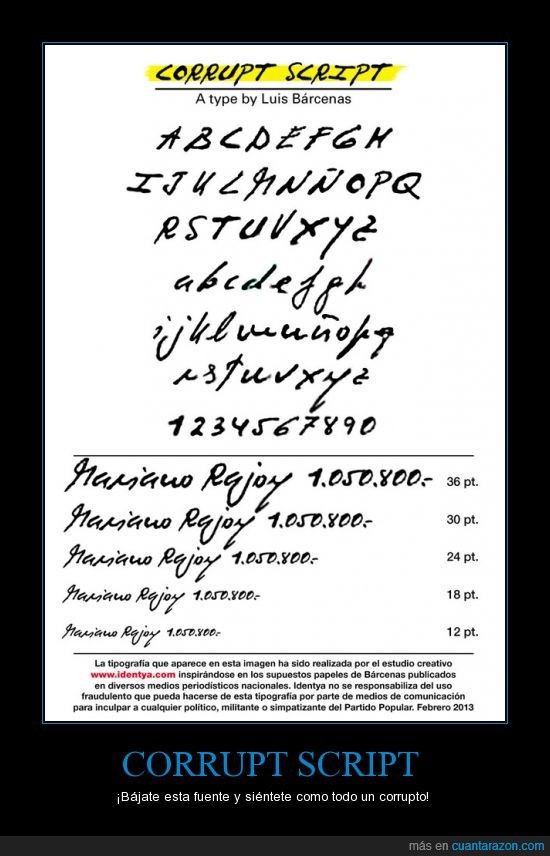 CORRUPT SCRIPT
A type by Luis Bárcenas
A B C D E F G H
I J K L M N Ñ O P Q
R S T U V X Y Z
a b c d e f g h
i j k l m n ñ o p q
r s t u v x y z
1 2 3 4 5 6 7 8 9 0
Mariano Rajoy 1.050.800.- 36 pt.
Mariano Rajoy 1.050.800.- 30 pt.
Mariano Rajoy 1.050.800.- 24 pt.
Mariano Rajoy 1.050.800.- 18 pt.
Mariano Rajoy 1.050.800.- 12 pt.
La tipografía que aparece en esta imagen ha sido realizada por el estudio creativo
www.identya.com inspirándose en los supuestos papeles de Bárcenas publicados
en diversos medios periodísticos nacionales. Identya no se responsabiliza del uso
fraudulento que pueda hacerse de esta tipografía por parte de medios de comunicación
para inculpar a cualquier político, militante o simpatizante del Partido Popular. Febrero 2013
CORRUPT SCRIPT
¡Bájate esta fuente y siéntete como todo un corrupto!
más en cuantarazon.com